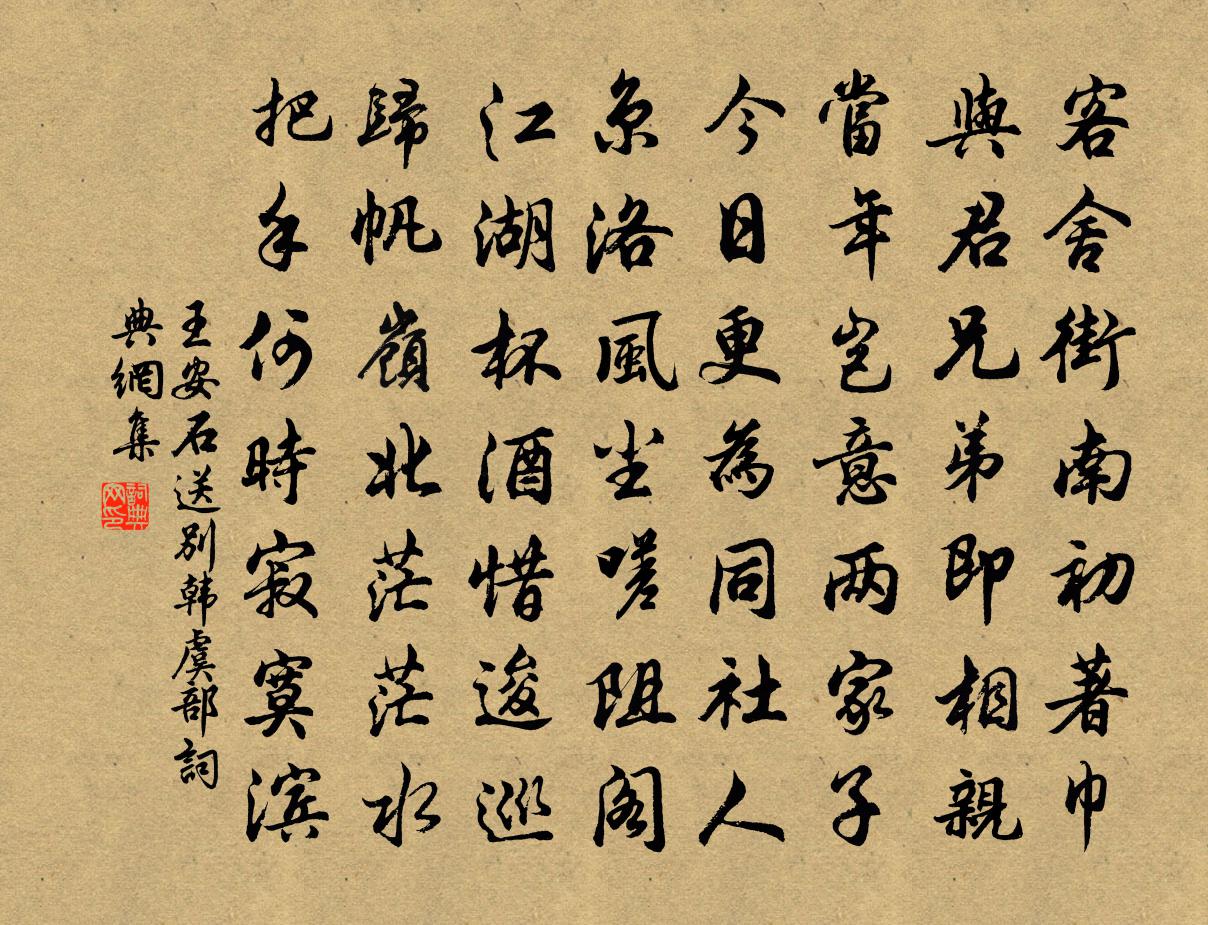 客舍街南初著巾
與君兄弟即相親
當年豈意两家子
今日更為同社人
京洛風尘嗟阻阔
江湖杯酒惜逡巡
歸帆嶺北茫茫水
把手何時寂寞滨
王安石送别韩虞部詞
典網集
詞典
网印